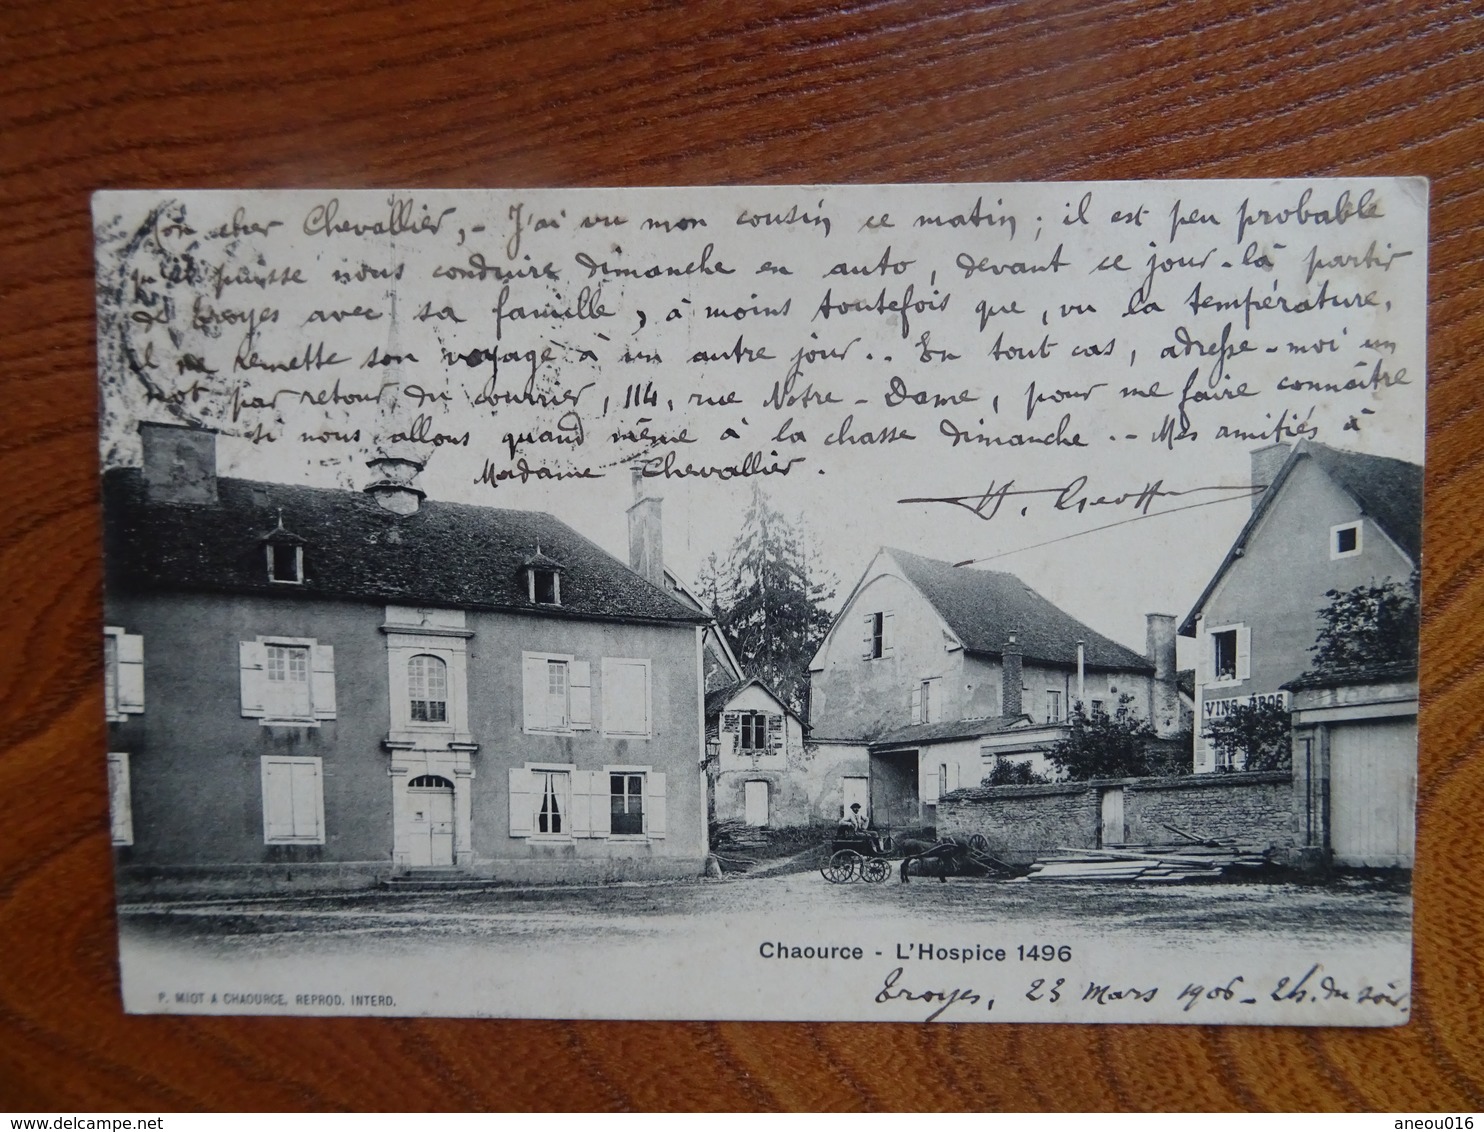 Mon cher Chevallier, - J'ai vu mon cousin ce matin ; il est peu probable
qu'il puisse nous conduire dimanche en auto, devant ce jour-là partir
de Troyes avec sa famille, à moins toutefois que, vu la température,
il ne remette son voyage à un autre jour.. En tout cas, adresse-moi un
mot par retour du courrier, 114, rue Notre-Dame, pour me faire connaître
si nous allons quand même à la chasse dimanche. - Mes amitiés à
Madame Chevallier.
VINS GROS
Chaource - L'Hospice 1496
P. MIOT A CHAOURCE. REPROD. INTERD.
Troyes, 23 mars 1906 - 2h. du soir.
aneou016